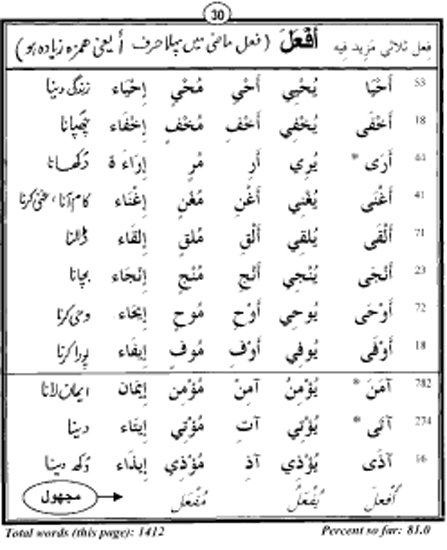 30
فعل ثلاثي مزيد فيه أَفْعَلَ ( فعل ماضی میں پہلا حرف أ یعنی ہمزہ زیادہ ہو )
53 أَحْيَا يُحْيِي أَحْيِ مُحْيٍ إِحْيَاء زندگی دینا
18 أَخْفَى يُخْفِي أَخْفِ مُخْفٍ إِخْفَاء چھپانا
أَرَى * يُرِي أَرِ مُرٍ إِرَاءَة دکھانا
41 أَغْنَى يُغْنِي أَغْنِ مُغْنٍ إِغْنَاء کام آنا، غنی کرنا
71 أَلْقَى يُلْقِي أَلْقِ مُلْقٍ إِلْقَاء ڈالنا
23 أَنْجَى يُنْجِي أَنْجِ مُنْجٍ إِنْجَاء بچانا
72 أَوْحَى يُوحِي أَوْحِ مُوحٍ إِيحَاء وحی کرنا
18 أَوْفَى يُوفِي أَوْفِ مُوفٍ إِيفَاء پورا کرنا
782 آمَنَ * يُؤْمِنُ آمِنْ مُؤْمِن إِيمَان ایمان لانا
274 آتَى * يُؤْتِي آتِ مُؤْتِي إِيتَاء دینا
آذَى يُؤْذِي آذِ مُؤْذِي إِيذَاء دکھ دینا
أُفْعِلَ يُفْعَلُ مُفْعَل مجهول
Total words (this page): 1412 Percent so far: 81.0